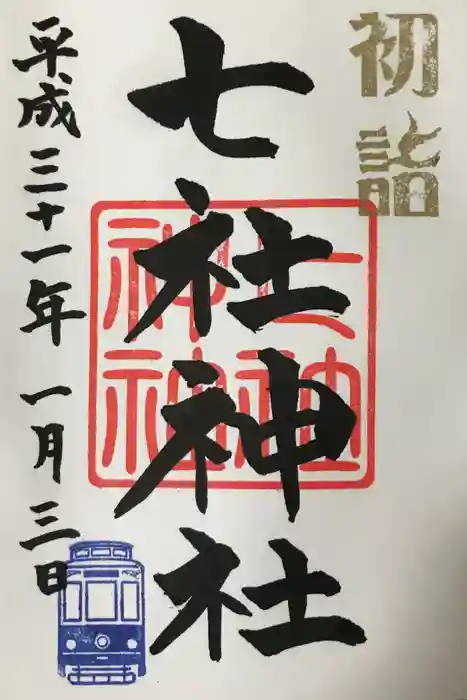 初詣
七社神社
平成三十一年一月三日
七社神社